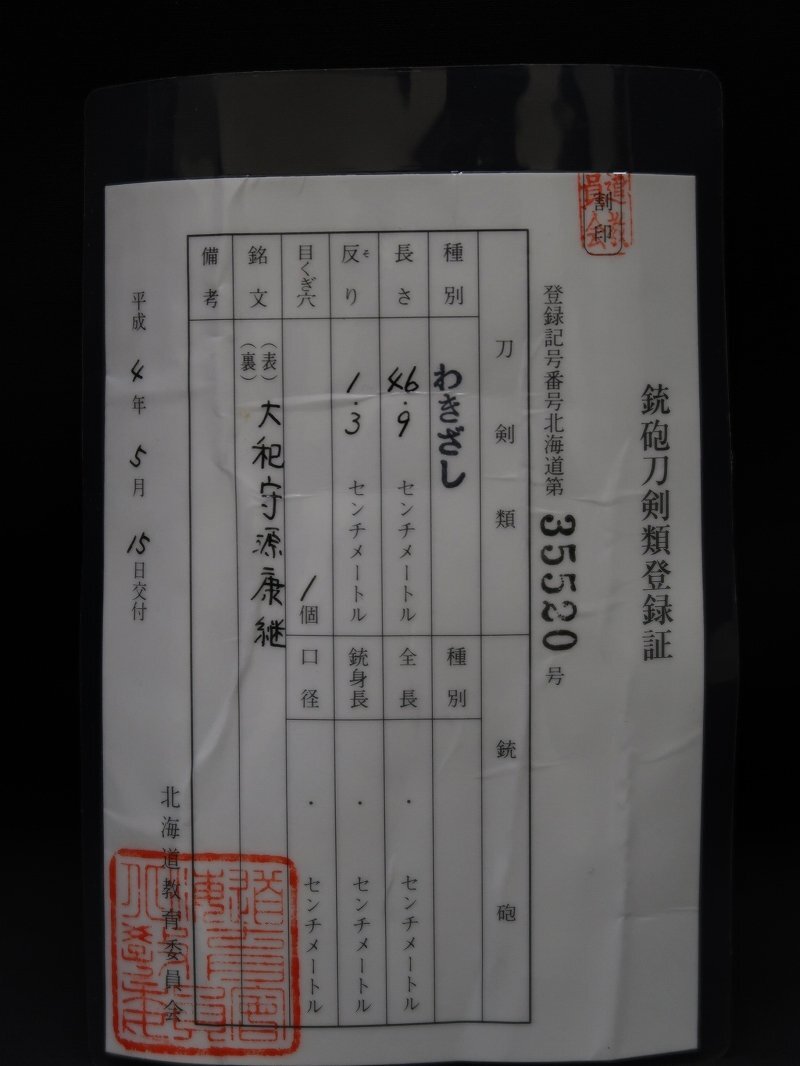 割印
銃砲刀剣類登録証
登録記号番号北海道第35520号
刀剣類
銃砲
種別
わきざし
種別
長さ
46.9センチメートル
全長
・センチメートル
反り
そ
1.3センチメートル
銃身長
・センチメートル
目くぎ穴
1個
口径
・センチメートル
銘文
(表)大和守源康継
(裏)
備考
平成4年5月15日交付
北海道教育委員会